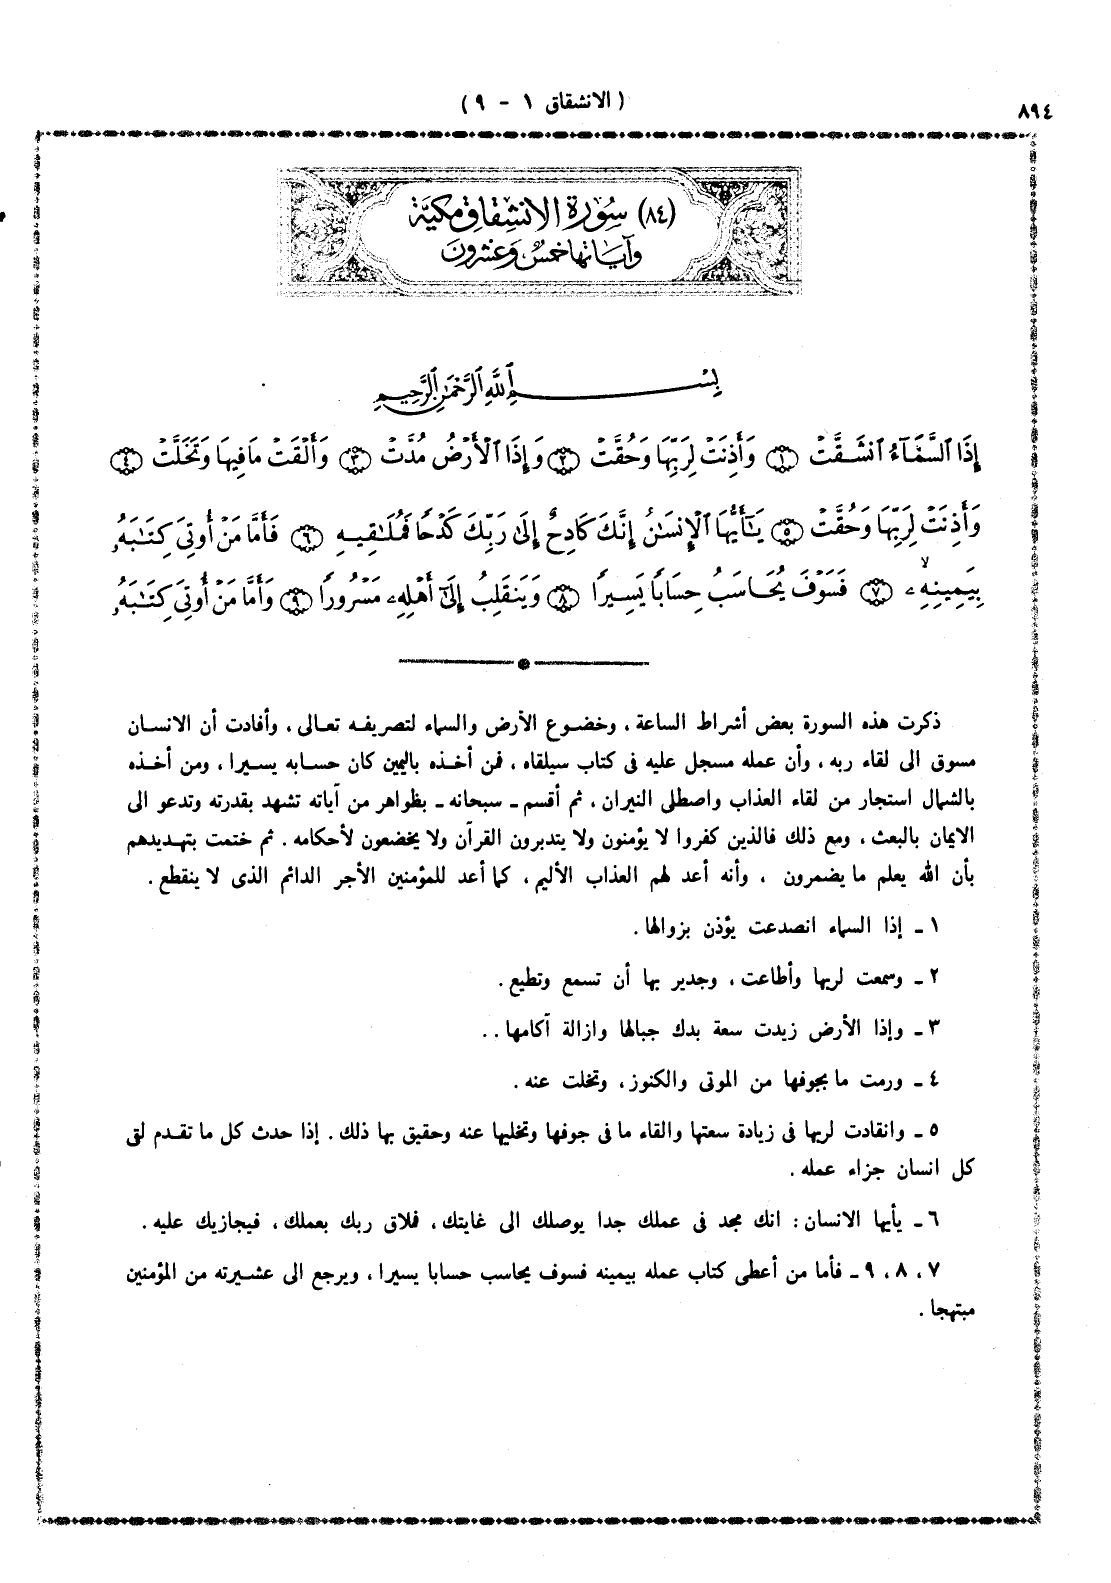 ٨٩٤
( الانشقاق ١ - ٩ )
(٨٤) سُورَة الانشِقاق مكيَّة
وَآيَاتها خمسٌ وَعشرُون
بِسْمِ اللَّهِ الرَّحْمَٰنِ الرَّحِيمِ
إِذَا ٱلسَّمَآءُ ٱنشَقَّتْ ١ وَأَذِنَتْ لِرَبِّهَا وَحُقَّتْ ٢ وَإِذَا ٱلْأَرْضُ مُدَّتْ ٣ وَأَلْقَتْ مَا فِيهَا وَتَخَلَّتْ ٤
وَأَذِنَتْ لِرَبِّهَا وَحُقَّتْ ٥ يَـٰٓأَيُّهَا ٱلْإِنسَـٰنُ إِنَّكَ كَادِحٌ إِلَىٰ رَبِّكَ كَدْحًا فَمُلَـٰقِيهِ ٦ فَأَمَّا مَنْ أُوتِىَ كِتَـٰبَهُۥ
بِيَمِينِهِۦ ٧ فَسَوْفَ يُحَاسَبُ حِسَابًا يَسِيرًا ٨ وَيَنقَلِبُ إِلَىٰٓ أَهْلِهِۦ مَسْرُورًا ٩ وَأَمَّا مَنْ أُوتِىَ كِتَـٰبَهُۥ
ذكرت هذه السورة بعض أشراط الساعة ، وخضوع الأرض والسماء لتصريفه تعالى ، وأفادت أن الانسان
مسوق الى لقاء ربه ، وأن عمله مسجل عليه فى كتاب سيلقاه ، فمن أخذه باليمين كان حسابه يسيرا ، ومن أخذه
بالشمال استجار من لقاء العذاب واصطلى النيران ، ثم أقسم ـ سبحانه ـ بظواهر من آياته تشهد بقدرته وتدعو الى
الايمان بالبعث ، ومع ذلك فالذين كفروا لا يؤمنون ولا يتدبرون القرآن ولا يخضعون لأحكامه . ثم ختمت بتهديدهم
بأن الله يعلم ما يضمرون ، وأنه أعد لهم العذاب الأليم ، كما أعد للمؤمنين الأجر الدائم الذى لا ينقطع .
١ ـ إذا السماء انصدعت يؤذن بزوالها .
٢ ـ وسمعت لربها وأطاعت ، وجدير بها أن تسمع وتطيع .
٣ ـ وإذا الأرض زيدت سعة بدك جبالها وازالة آكامها . .
٤ ـ ورمت ما بجوفها من الموتى والكنوز ، وتخلت عنه .
٥ ـ وانقادت لربها فى زيادة سعتها والقاء ما فى جوفها وتخليها عنه وحقيق بها ذلك . إذا حدث كل ما تقدم لقى
كل انسان جزاء عمله .
٦ ـ يأيها الانسان : انك مجد فى عملك جدا يوصلك الى غايتك ، فلاق ربك بعملك ، فيجازيك عليه .
٧ ، ٨ ، ٩ ـ فأما من أعطى كتاب عمله بيمينه فسوف يحاسب حسابا يسيرا ، ويرجع الى عشيرته من المؤمنين
مبتهجا .